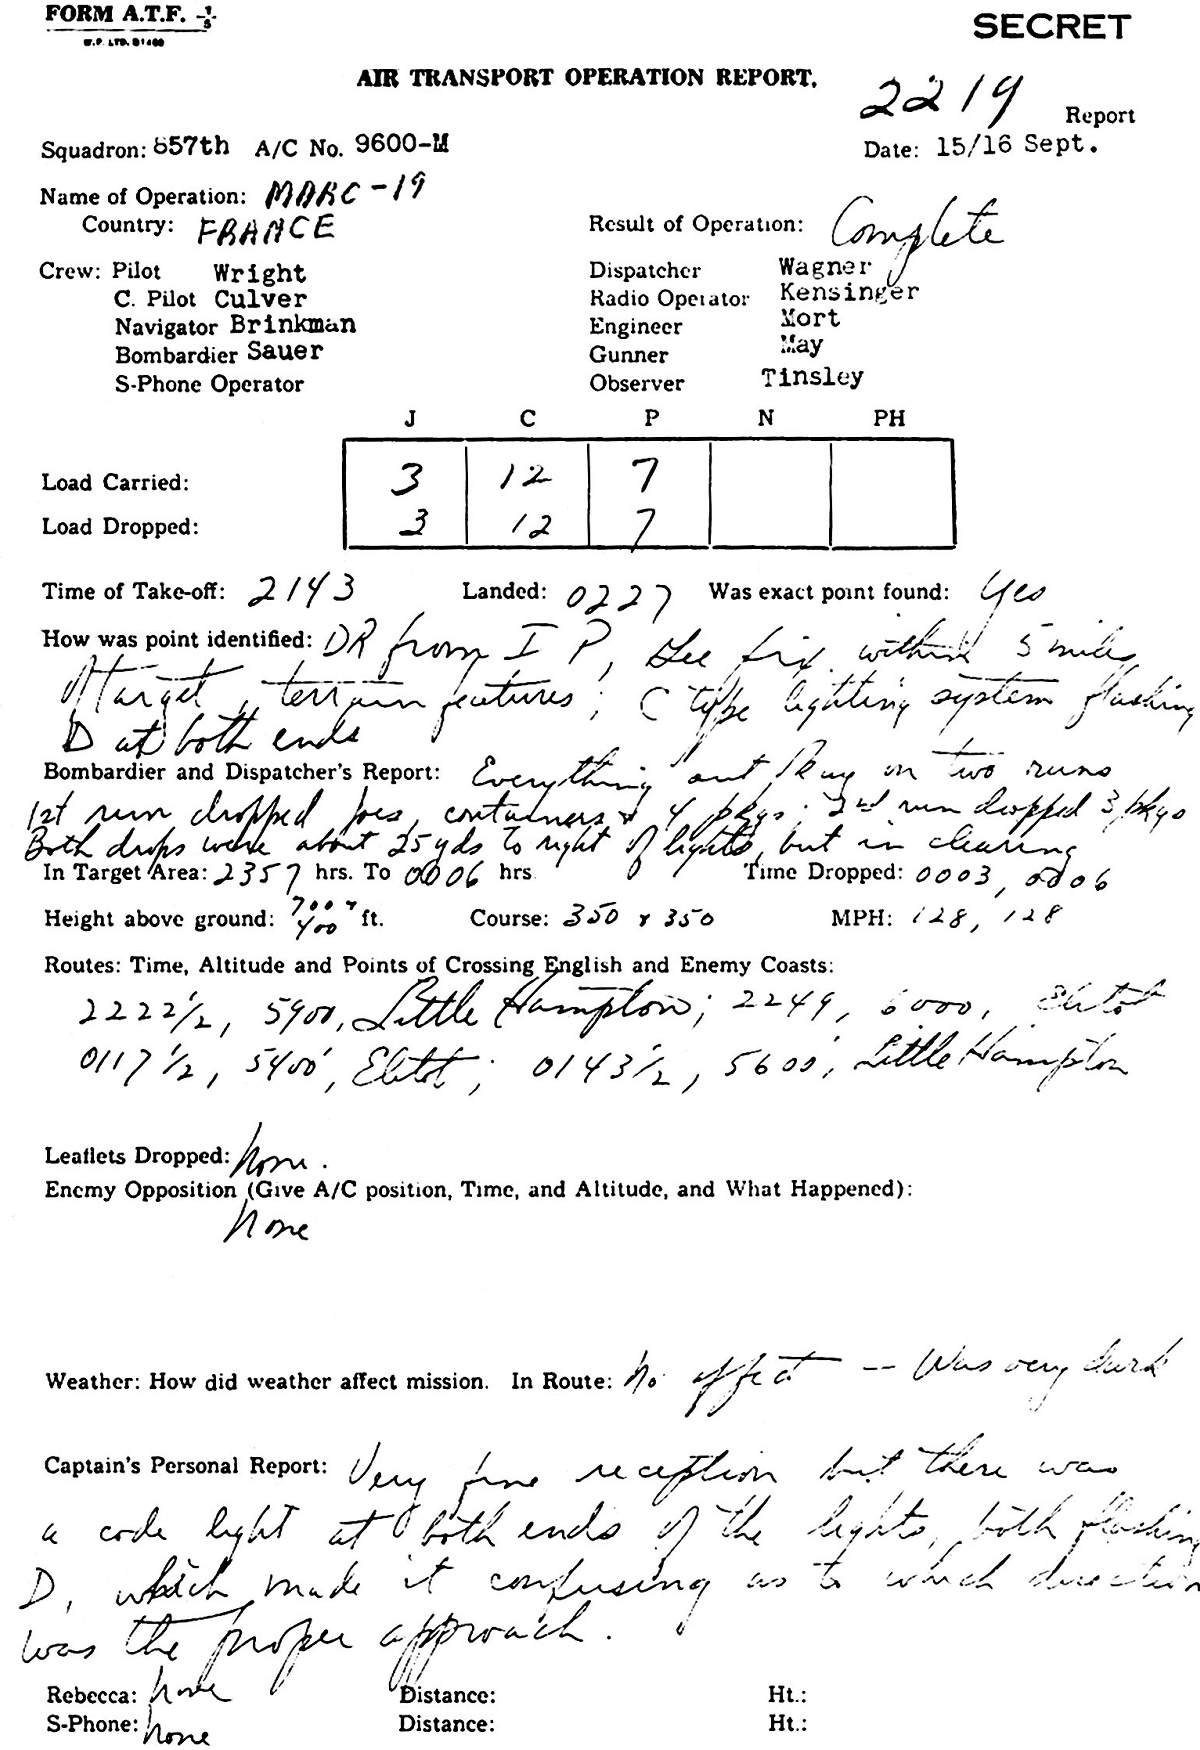 FORM A.T.F. 1/5
W.P. LTD. 81460
SECRET
AIR TRANSPORT OPERATION REPORT.
2219 Report
Squadron: 857th A/C No. 9600-M Date: 15/16 Sept.
Name of Operation: MARC-19
Country: FRANCE Result of Operation: Complete
Crew: Pilot Wright Dispatcher Wagner
C. Pilot Culver Radio Operator Kensinger
Navigator Brinkman Engineer Mort
Bombardier Sauer Gunner May
S-Phone Operator Observer Tinsley
J C P N PH
Load Carried: 3 12 7
Load Dropped: 3 12 7
Time of Take-off: 2143 Landed: 0227 Was exact point found: Yes
How was point identified: DR from I P, Gee fix within 5 miles
of target, terrain features; C type lighting system flashing
D at both ends
Bombardier and Dispatcher's Report: Everything out Okay on two runs
1st run dropped Joes, containers & 4 pkgs. 2nd run dropped 3 pkgs
Both drops were about 25 yds to right of lights, but in clearing
In Target Area: 2357 hrs. To 0006 hrs Time Dropped: 0003, 0006
Height above ground: 700 + 400 ft. Course: 350 & 350 MPH: 128, 128
Routes: Time, Altitude and Points of Crossing English and Enemy Coasts:
2222½, 5900, Little Hampton; 2249, 6000, Eletot
0117½, 5400', Eletot; 0143½, 5600', Little Hampton
Leaflets Dropped: None.
Enemy Opposition (Give A/C position, Time, and Altitude, and What Happened):
None
Weather: How did weather affect mission. In Route: No affect -- Was very dark
Captain's Personal Report: Very fine reception but there was
a code light at both ends of the lights, both flashing
D, which made it confusing as to which direction
was the proper approach.
Rebecca: None Distance: Ht.:
S-Phone: None Distance: Ht.: